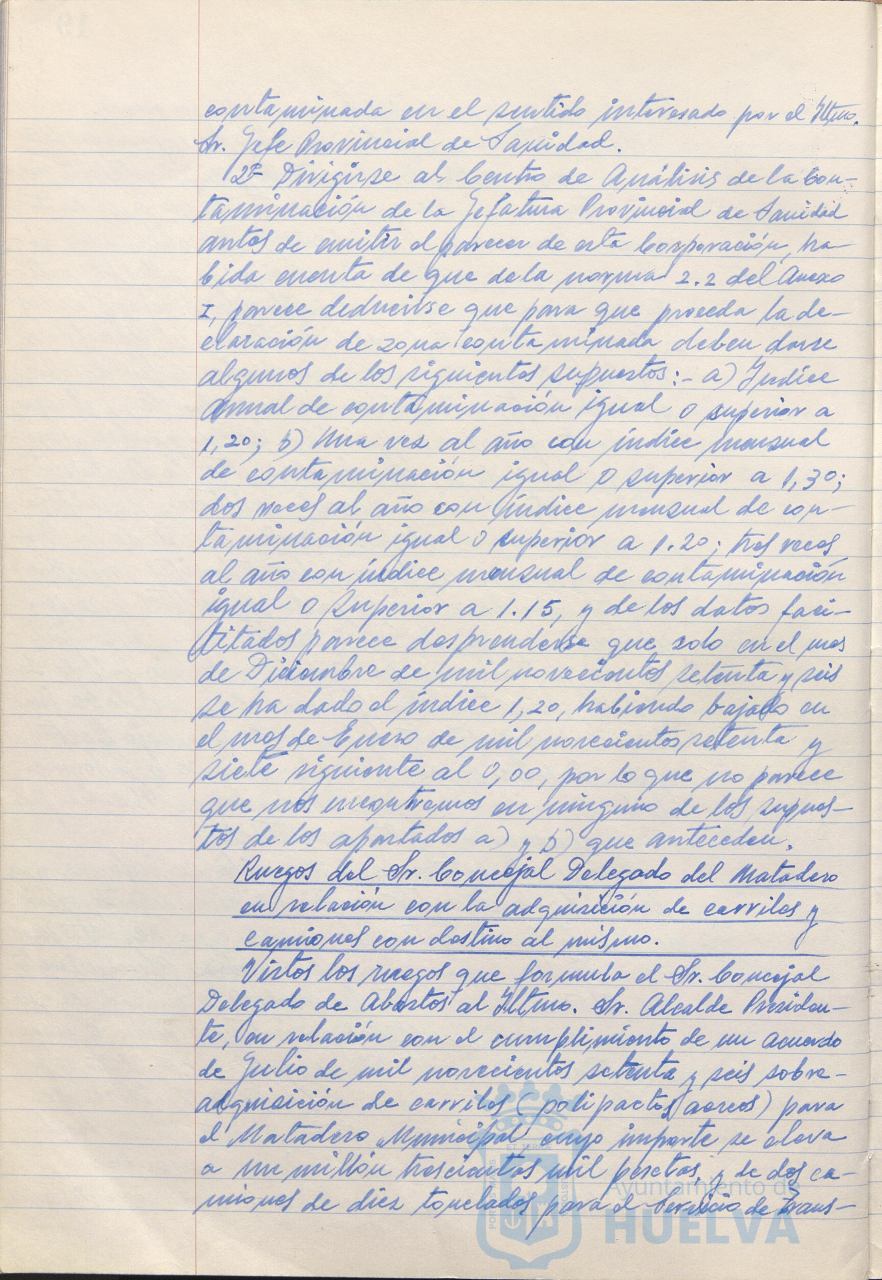 contaminada en el sentido interesado por el Iltmo.
Sr. Jefe Provincial de Sanidad.
2º- Dirigirse al Centro de Análisis de la Con-
taminación de la Jefatura Provincial de Sanidad
antes de emitir el parecer de esta Corporación, ha-
bida cuenta de que de la norma 2.2 del Anexo
I, parece deducirse que para que proceda la de-
claración de zona contaminada deben darse
algunos de los siguientes supuestos:- a) Indice
annal de contaminación igual o superior a
1,20; b) Una vez al año con índice mensual
de contaminación igual o superior a 1,30;
dos veces al año con índice mensual de con-
taminación igual o superior a 1.20; tres veces
al año con índice mensual de contaminación
igual o superior a 1.15, y de los datos faci-
litados parece desprenderse que solo en el mes
de Diciembre de mil novecientos setenta y seis
se ha dado el índice 1,20, habiendo bajado en
el mes de Enero de mil novecientos setenta y
siete siguiente al 0,00, por lo que no parece
que nos encontremos en ninguno de los supues-
tos de los apartados a) y b) que anteceden.
Ruegos del Sr. Concejal Delegado del Matadero
en relación con la adquisición de carriles y
camiones con destino al mismo.
Vistos los ruegos que formula el Sr. Concejal
Delegado de Abastos al Iltmo. Sr. Alcalde Presiden-
te, en relación con el cumplimiento de un acuerdo
de Julio de mil novecientos setenta y seis sobre
adquisición de carriles (polipastos aereos) para
el Matadero Municipal, cuyo importe se eleva
a un millón trescientas mil pesetas, y de dos ca-
miones de diez toneladas para el Servicio de trans-
Ayuntamiento de
HUELVA